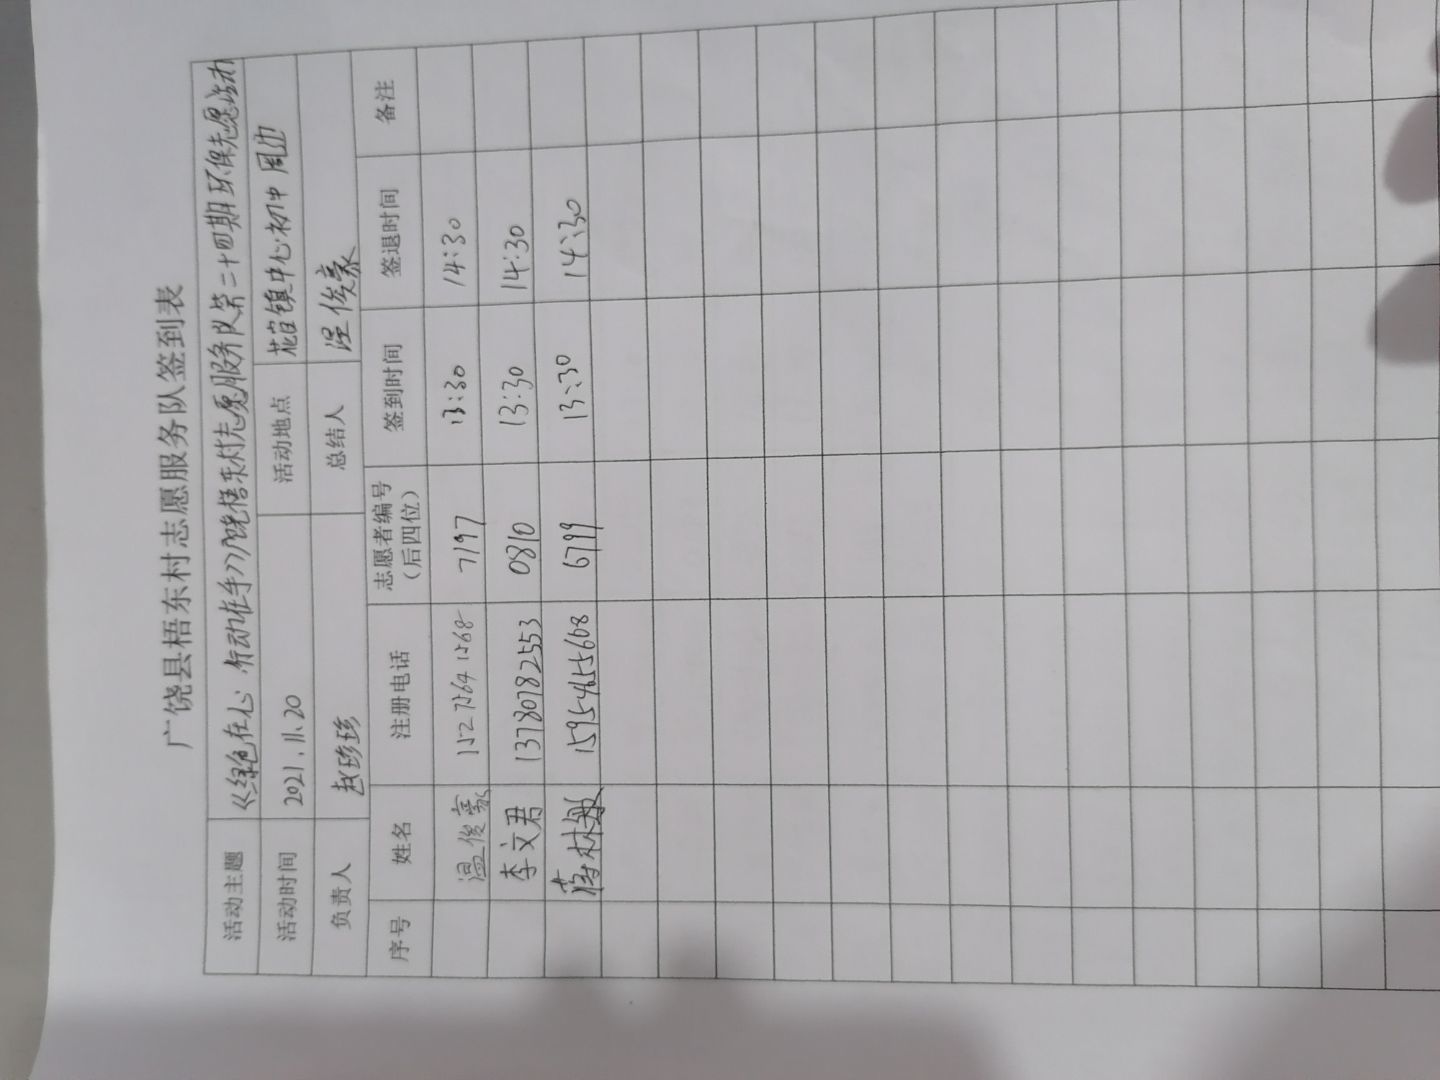 广饶县梧东村志愿服务队签到表
活动主题 《绿色在心 行动在手》广饶梧东村志愿服务队第二十四期环保志愿活动
活动时间 2021.11.20 活动地点 花官镇中心初中周边
负责人 赵珍珍 总结人 温俊豪
序号 姓名 注册电话 志愿者编号 签到时间 签退时间 备注
(后四位)
温俊豪 15275641568 7197 13:30 14:30
李文君 13780782553 0810 13:30 14:30
林 15954655608 6799 13:30 14:30